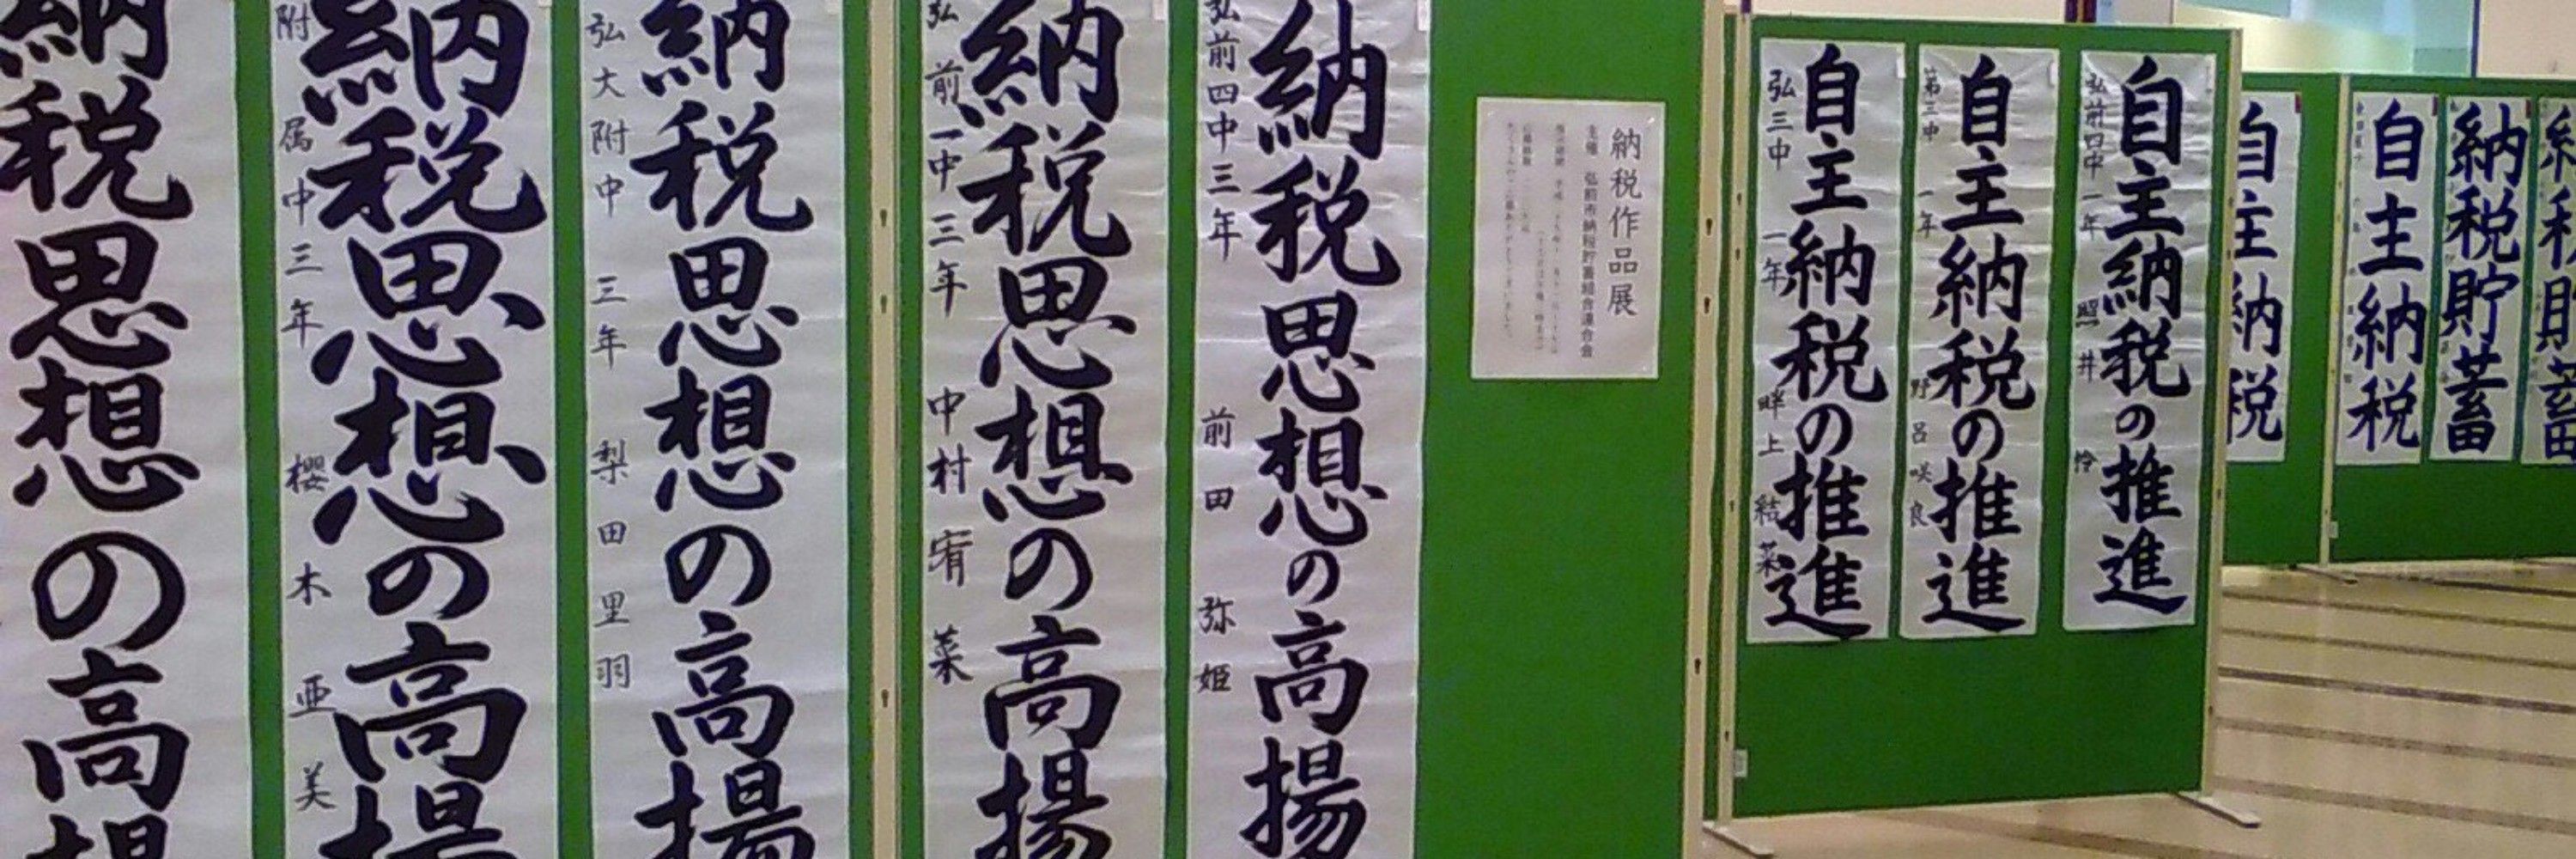 納税思想の高揚
附属中三年 櫻木亜美
納税思想の高揚
弘大附中 三年 梨田里羽
納税思想の高揚
弘前一中三年 中村宥菜
納税思想の高揚
弘前四中三年 前田弥姫
納税思想の高揚
納税作品展
主催 弘前市納税貯蓄組合連合会
弘三中 一年 畔上結菜
自主納税の推進
第三中 一年 野呂咲良
自主納税の推進
弘前四中一年 照井怜
自主納税の推進
自主納税
自主納税
納税貯蓄